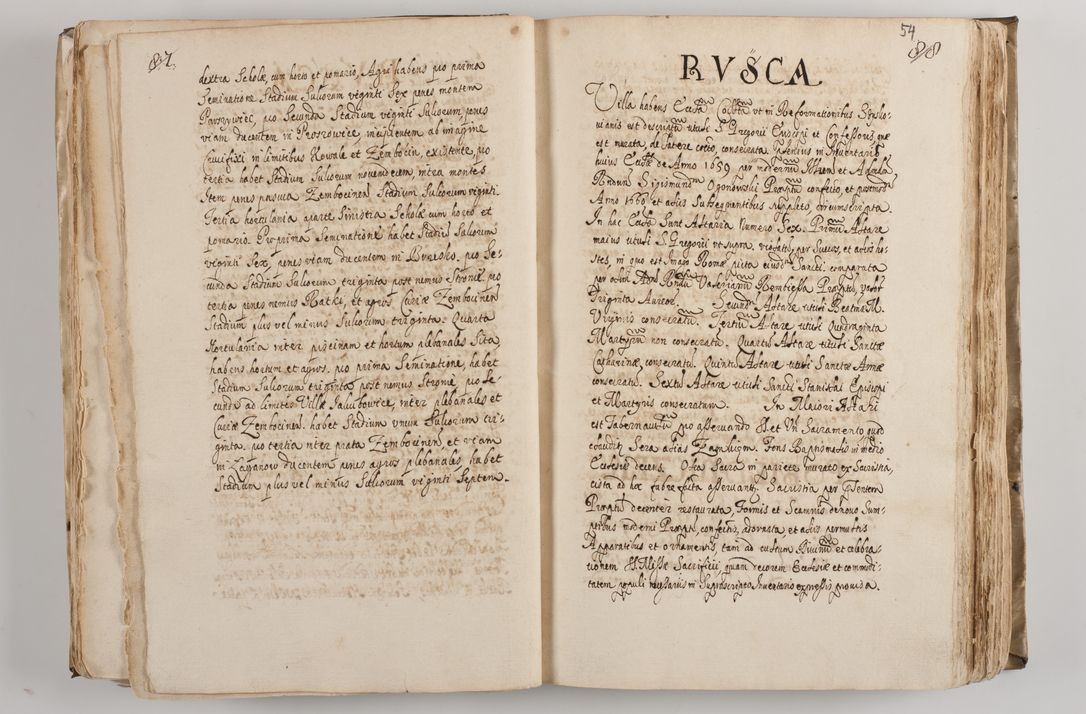 87.
dextra Scholæ, cum horto et pomario, Agri habens pro prima
Seminatione Stadium Sulcorum viginti Sex penes montem
pro Secunda Stadium viginti Sulcorum penes
viam ducentem in Proszovice, incipientem ab imagine
Crucifixi in limitibus Kowale et Zembocin, existente, pro
tertia habet Stadium Sulcorum novendecem intra montes
Item penes pascua Zembocinen Stadium Sulcorum viginti
Tertia hortulania a parte Sinistra Scholæ cum horto et
pomario. Pro prima Seminatione habet Stadiū Sulcorum
viginti Sex, penes viam ducentem in pro Se-
cunda Stadium Sulcorum triginta post nemus Stronie. pro
tertia penes nemus et agros Curiæ Zembocinen
Stadium plus vel minus Sulcorum triginta. Quarta
Hortulania inter piscinam et hortum plebanales Sita
habens hortum et agros. pro prima Seminatione, habet
Stadium Sulcorum triginta post nemus Strognie, pro Se
cunda ad limites Villæ Jakubovice, inter plebanales et
Curiæ Zembocinen. habet Stadium unum Sulcorum tri-
ginta. pro tertia inter prata Zembocinen et viam
in Łaganow ducentem penes agros plebanales habet
Stadium plus vel minus Sulcorum viginti Septem.
54
88
RVSCA
Villa habens Ecclām ut in Reformationibus Episco-
est tituli S. Gregorii Episcopi et Confessoris, quæ
est murata, de latere cocto, consecrata in Inventario
huius Ecclæ de Anno 1659 per modernum et
Rndum Sigismundum Ogonowski confecto, et postmodū
Anno 1660 et aliis Subsequentibus suppleto, circumscripta.
In hac Ecclā Sunt Altaria Numero Sex. Primū Altare
maius tituli S. Gregorii ut supra. per Suecos, et alios ho-
stes, in quo est Imago Romæ picta eiusdē Sancti. comparata
per Valerianū
Triginta Aureos. Secundū Altare tituli Beatæ M.
Virginis consecratū. Tertiū Altare tituli Quadraginta
Martyrū non consecratū. Quartū Altare tituli Sanctæ
Catharinæ consecratū. Quintū Altare tituli Sanctæ Annæ
consecratū. Sextū Altare tituli Sancti Stanislai Episcopi
et Martyris consecratum. In Maiori Altari
est pro asservando SS. Sacramento quod
clauditur Sera Fons Baptismalis in medio
Ecclesiæ decens. Olea Sacra in pariete murato ex Sacristia,
cista ad hoc asservantur. Sacristia per
decenter restaurata, Formis et Scamnis denovo Sum-
ptibus moderni confectis, adornata et aliis permultis
Apparatibus et ornamentis, tam ad cultum Divinū et celebra-
tionem SS. Missæ Sacrificii, quam decorem Ecclesiæ et commodi-
tatem populi necessariis in Suprascripto Inventario expressis provisa.